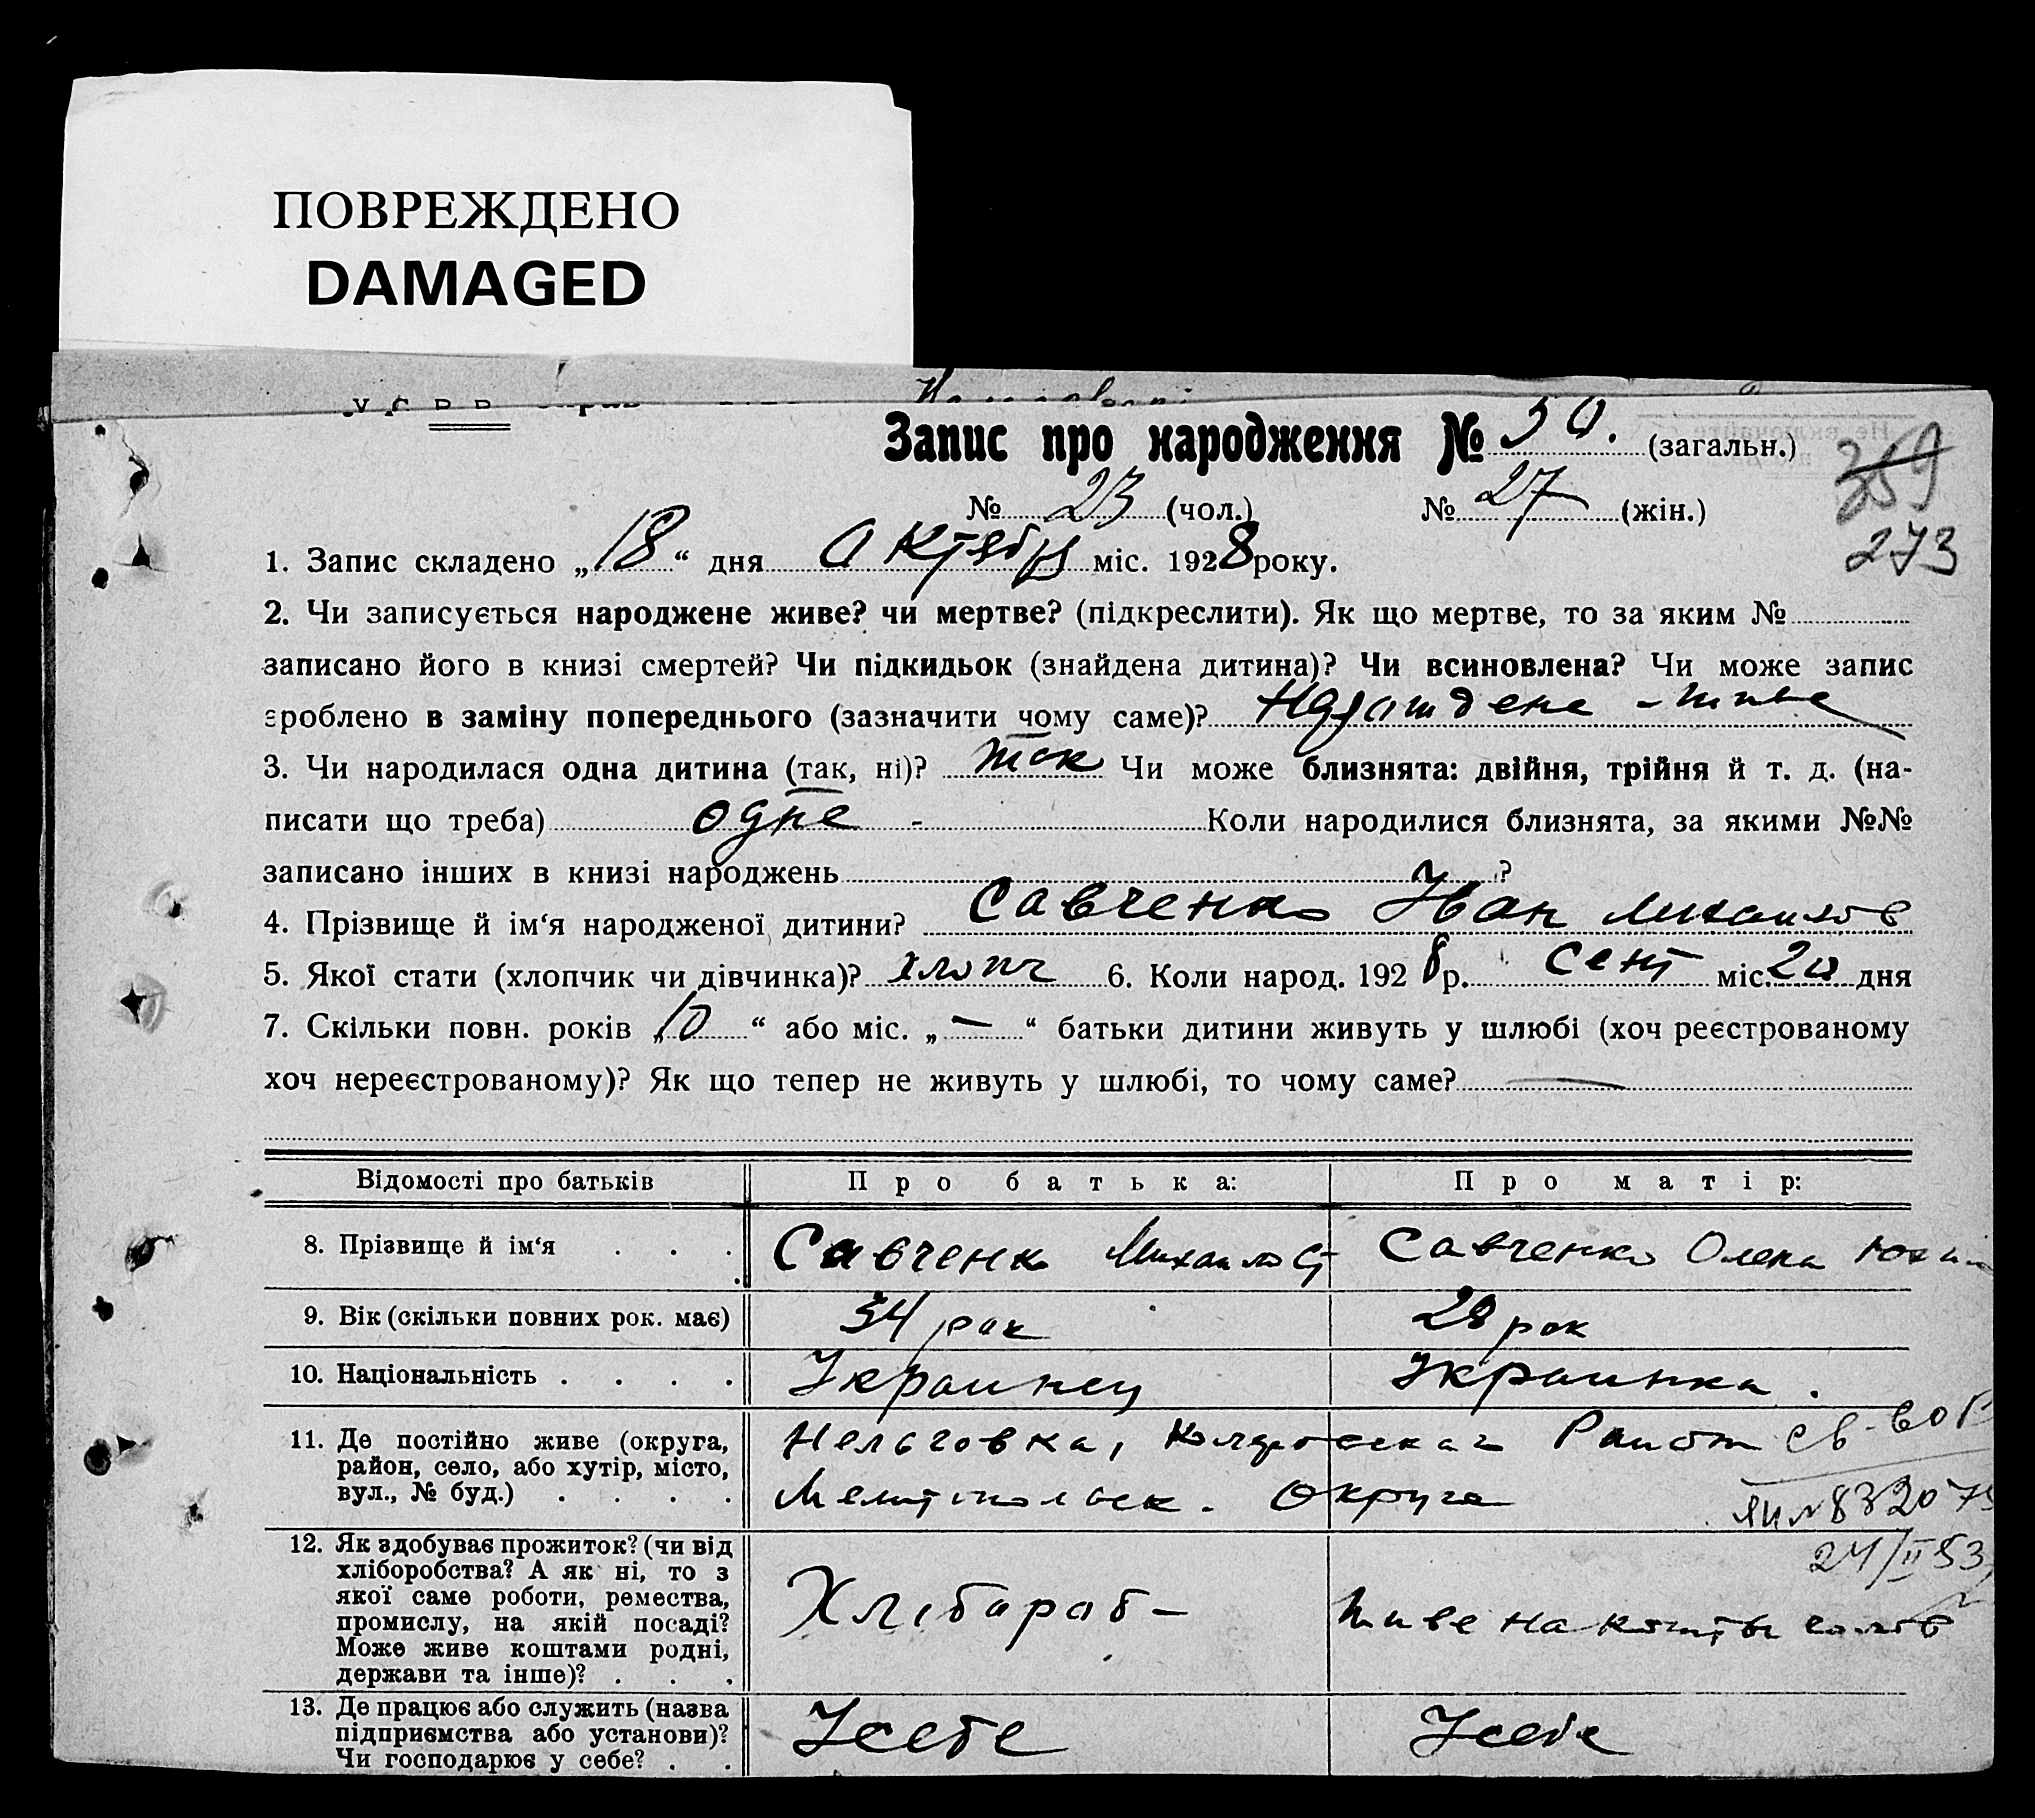 ПОВРЕЖДЕНО
DAMAGED
У.С.Р.Р.
Запис про народження № 50. (загальн.)
359
№ 23 (чол.) № 27 (жін.)
273
1. Запис складено „18“ дня Октября міс. 1928 року.
2. Чи записується народжене живе? чи мертве? (підкреслити). Як що мертве, то за яким №
записано його в книзі смертей? Чи підкидьок (знайдена дитина)? Чи всиновлена? Чи може запис
зроблено в заміну попереднього (зазначити чому саме)? Народжене - живе
3. Чи народилася одна дитина (так, ні)? так Чи може близнята: двійня, трійня й т. д. (на-
писати що треба) одне - Коли народилися близнята, за якими №№
записано інших в книзі народжень ?
4. Прізвище й ім‘я народженої дитини? Савченко Іван Михайлов
5. Якої стати (хлопчик чи дівчинка)? хлопч 6. Коли народ. 1928 р. Сент міс. 20 дня
7. Скільки повн. років „10“ або міс. „—“ батьки дитини живуть у шлюбі (хоч реєстрованому
хоч нереєстрованому)? Як що тепер не живуть у шлюбі, то чому саме? —
Відомості про батьків Про батька: Про матір:
8. Прізвище й ім‘я . . . Савченко Михайло Савченко Олена
9. Вік (скільки повних рок. має) 34 рок 28 рок
10. Національність . . . . Украинец Украинка.
11. Де постійно живе (округа, район, село, або хутір, місто, вул., № буд.) . . . . Нельговка, Район
Мелитопольск. Округа
св-во
ЯЦ №832075
24/II 53
12. Як здобуває прожиток? (чи від хліборобства? А як ні, то з якої саме роботи, ремества, промислу, на якій посаді? Може живе коштами родні, держави та інше)? . . . Хлібароб - живе на
13. Де працює або служить (назва підприємства або установи)? Чи господарює у себе? . . Усебе Усебе